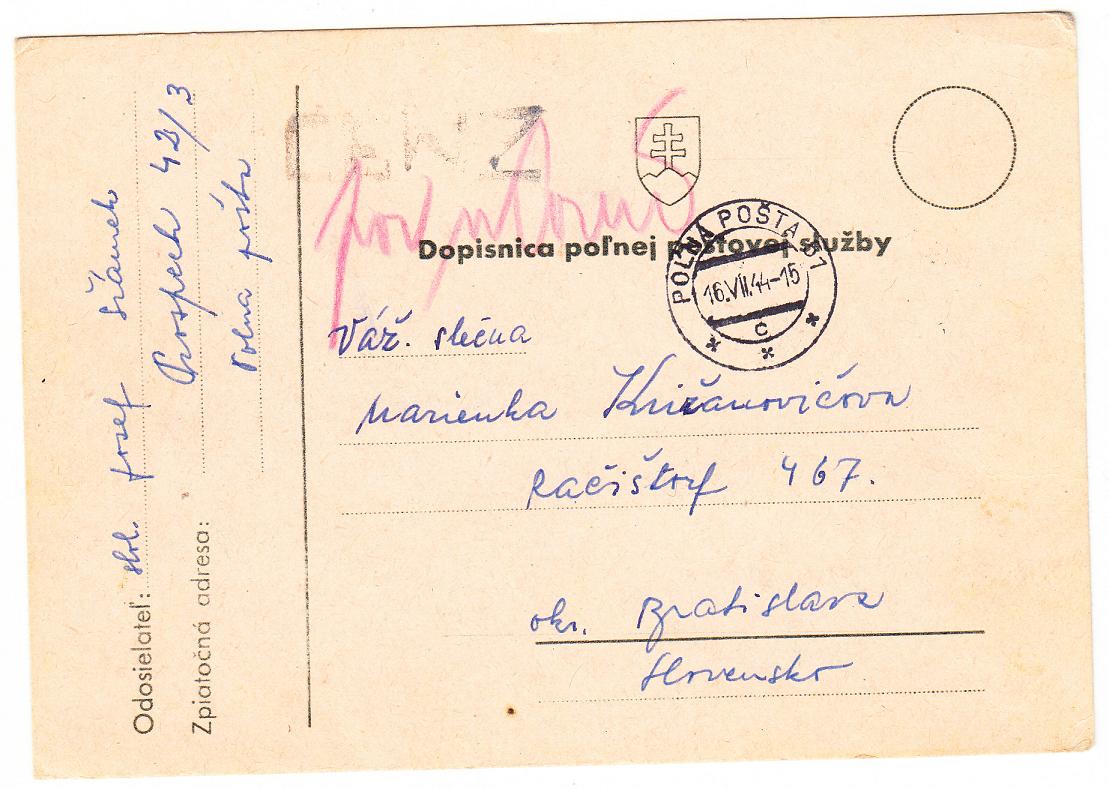 Odosielateľ: slob. Josef Šrámek
Zpiatočná adresa: Prospech 42/3
Polna pošta
CENZ
Dopisnica poľnej poštovej služby
POĽNÁ POŠTA 51
16.VII.44-15
C
Váž. slečna
Marienka Križanovičova
Račištorf 467.
okr. Bratislava
Slovensko